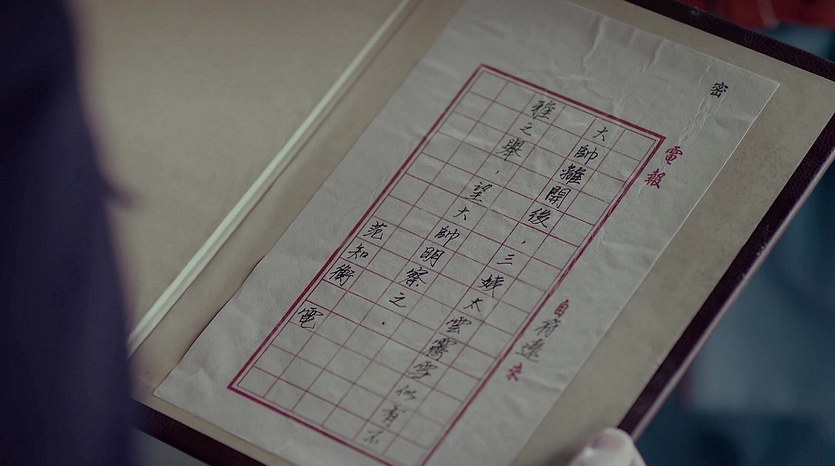 密
電報
自 來
大帥離開後,三姨太雲 似有不
雅之舉,望大帥明察之.
范知衡
電